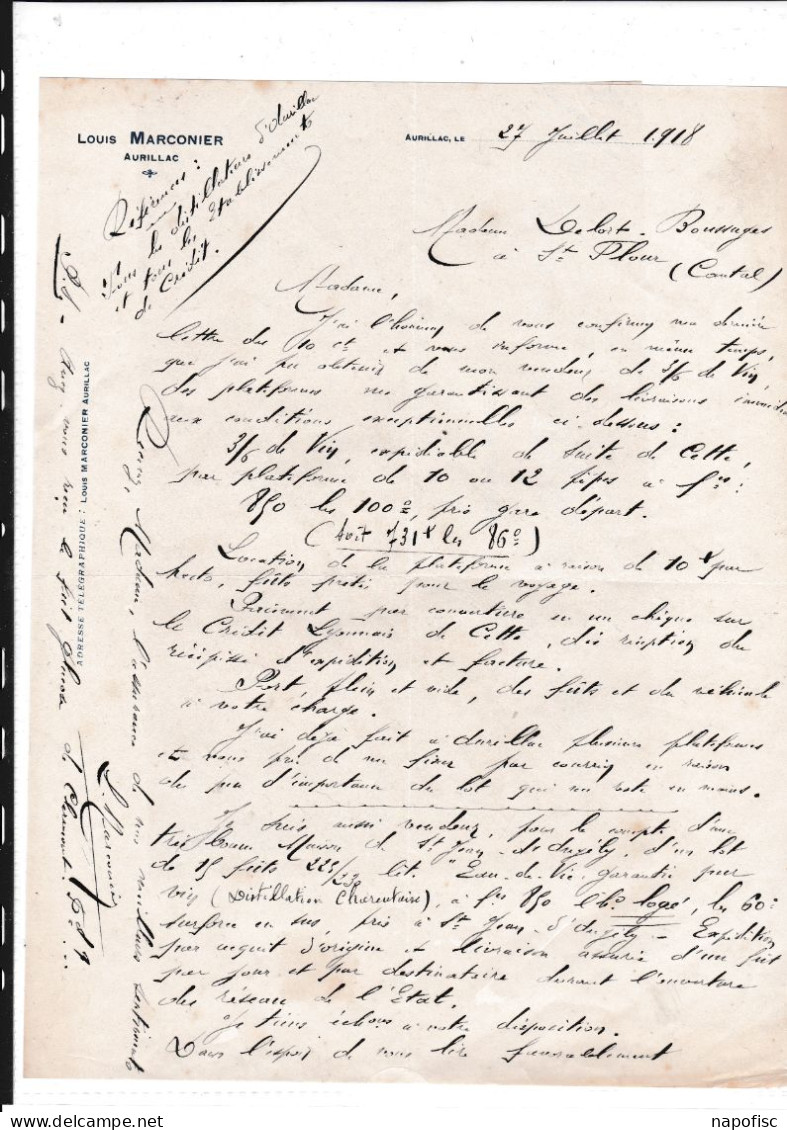 LOUIS MARCONIER
AURILLAC
AURILLAC, LE 27 Juillet 1918
Références :
Tous les distillateurs d'Aurillac
et tous les Etablissements
de Crédit.
Madame Delort-Boussuges
à St Flour
(Cantal)
Madame,
J'ai l'honneur de vous confirmer ma dernière
lettre du 10 ct et vous informe, en même temps,
que j'ai pu obtenir de mon vendeur de 3/6 de Vin,
des plateformes me garantissant des livraisons
aux conditions exceptionnelles ci-dessous :
3/6 de Vin, expédiable de suite de Cette,
par plateforme de 10 ou 12 pipes à fcs :
850 les 100°, pris gare départ.
(soit 731 f les 86°)
Location de la plateforme à raison de 10 f par
hecto, fûts prêtés pour le voyage.
Paiement par couverture en un chèque sur
le Crédit Lyonnais de Cette, dès réception du
récépissé d'expédition et facture.
Port, plein et vide, des fûts et du véhicule
à votre charge.
J'ai déjà fait à Aurillac plusieurs plateformes
et vous prie de me fixer par courrier en raison
du peu d'importance du lot qui me reste en mains.
Je suis aussi vendeur, pour le compte d'une
très bonne Maison de St Jean-d'Angély, d'un lot
de 15 fûts 225/230 lit. Eau-de-Vie garantie pur
vin (Distillation Charentaise), à fcs 850 l'ho logé, les 60°
surforce en sus, pris à St Jean-d'Angély - Expédition
par acquit d'origine et livraison assurée d'un fût
par jour et par destinataire durant l'ouverture
du réseau de l'Etat.
Je tiens échons à votre disposition.
Dans l'espoir de vous lire favorablement
Recevez, Madame, l'assurance de mes meilleurs sentiments
L. Marconier
ADRESSE TÉLÉGRAPHIQUE : LOUIS MARCONIER AURILLAC
P.S. - Avez vous reçu le fût de Clermont-Fd ? ...
napofisc